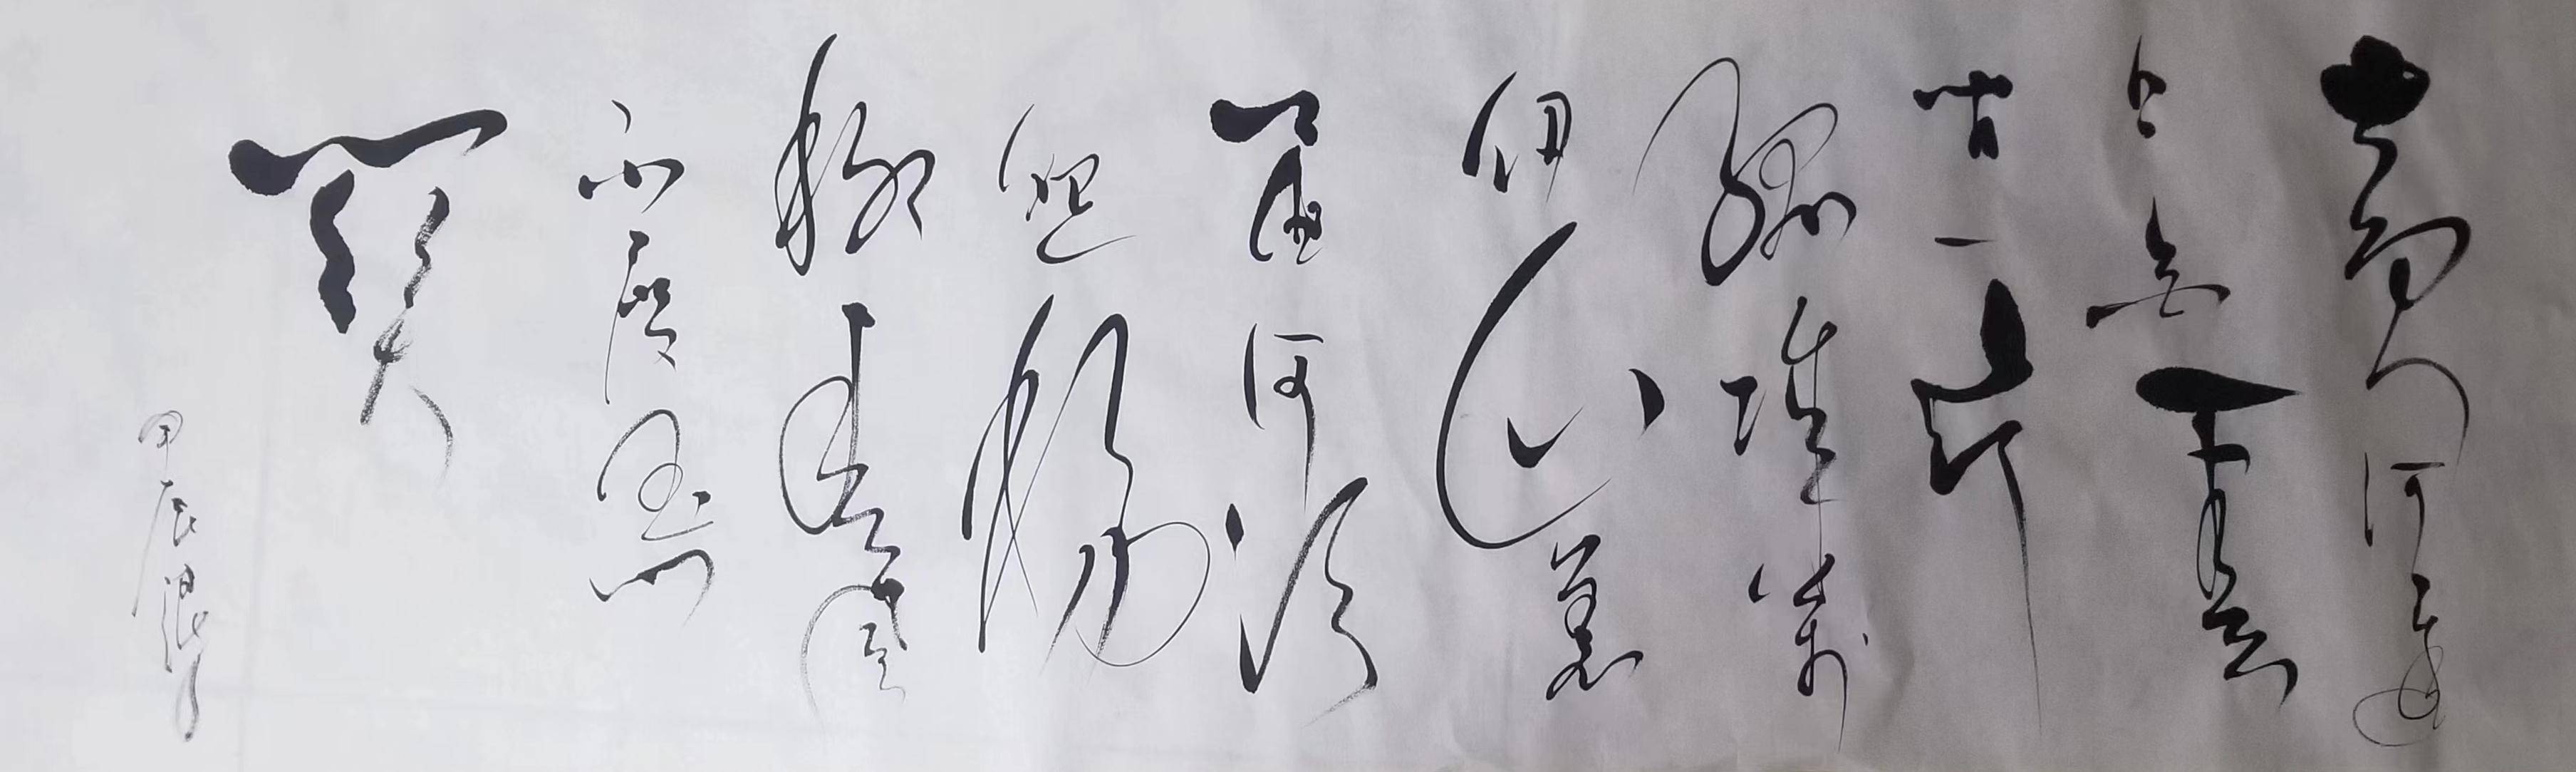 黄河远
上白云
间一片
孤城万
仞山羌
笛何须
怨杨
柳春风
不度玉门
关
甲辰